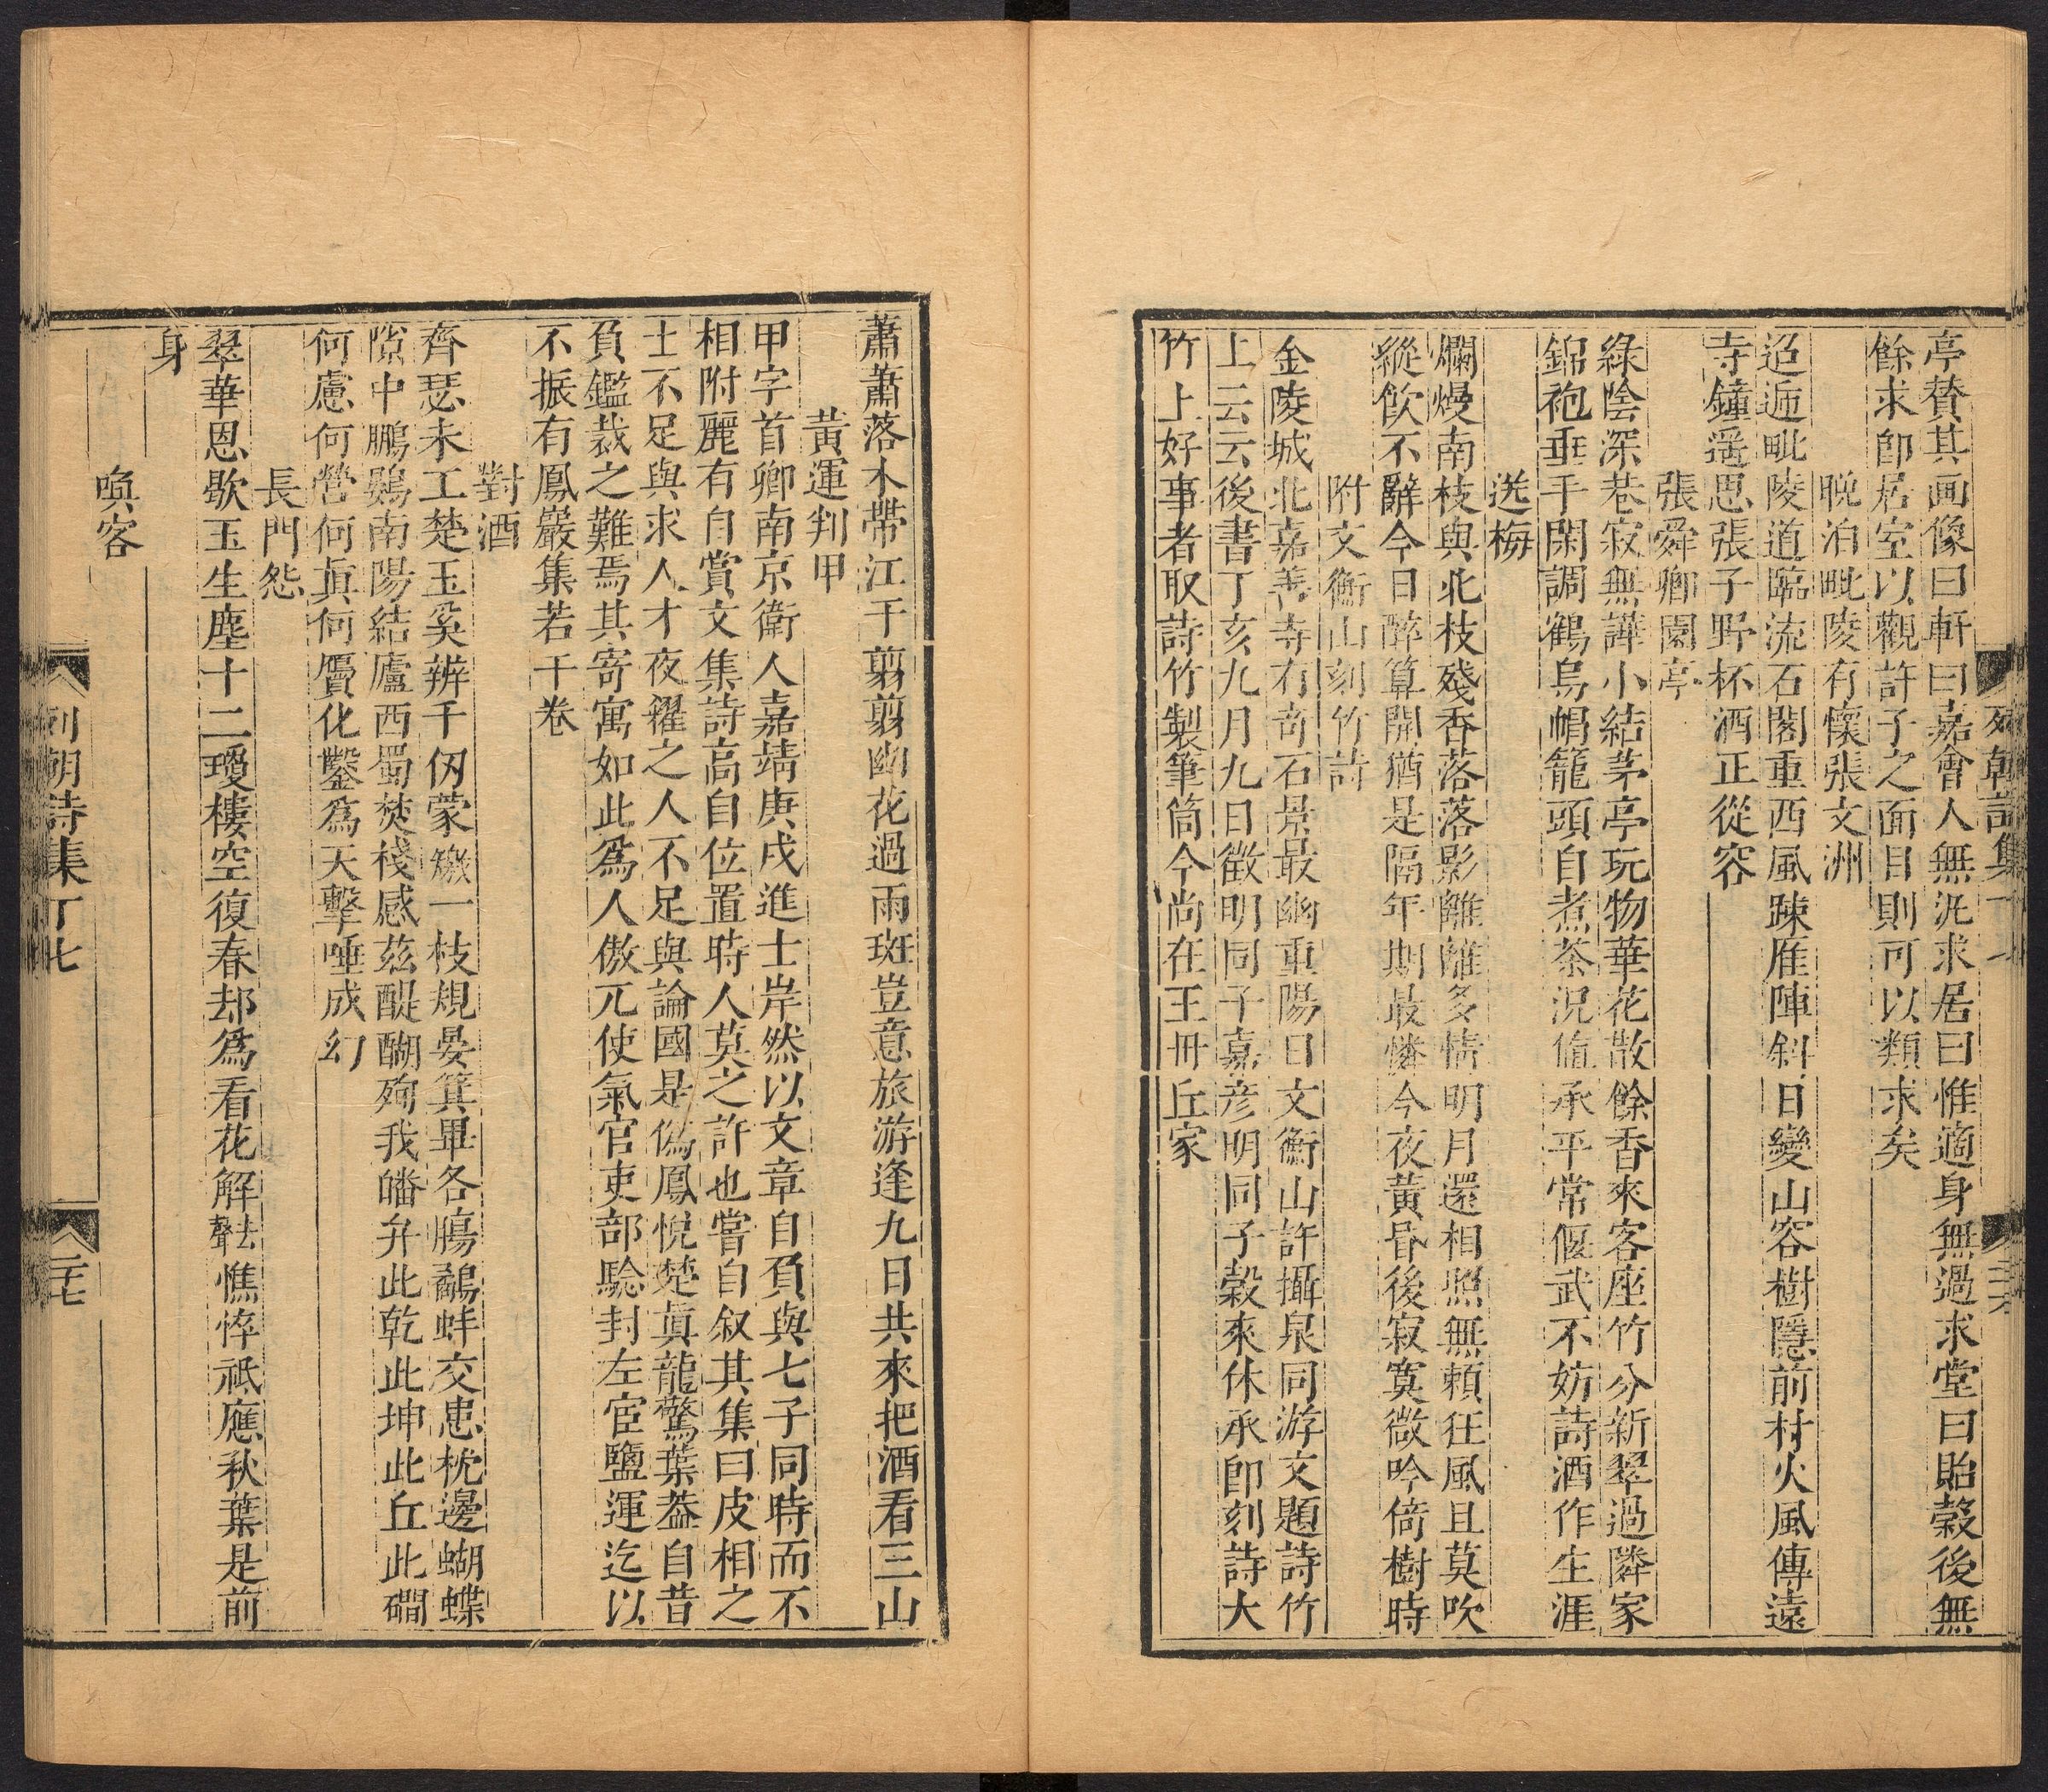 亭贊其画像曰軒曰嘉會人無泛求居曰惟適身無過求堂曰貽穀後無
餘求卽居室以觀許子之面目則可以類求矣
晚泊毗陵有懷張文洲
迢遞毗陵道臨流石閣重西風踈雁陣斜日變山容樹隱前村火風傳遠
寺鐘遥思張子野杯酒正從容
張舜卿園亭
綠陰深巷寂無譁小結茅亭玩物華花散餘香來客座竹分新翠過隣家
錦袍垂手閑調鶴烏帽籠頭自煮茶況值承平常偃武不妨詩酒作生涯
送梅
爛熳南枝與北枝殘香落落影離離多情明月還相照無頼狂風且莫吹
縱飲不辭今日醉算開猶是隔年期最憐今夜黄昏後寂寞微吟倚樹時
附文衡山刻竹詩
金陵城北嘉善寺有奇石景最幽重陽日文衡山許攝泉同游文題詩竹
上云云後書丁亥九月九日徵明同子嘉彦明同子穀來休承卽刻詩大
竹上好事者取詩竹製筆筒今尚在王冊丘家
列朝詩集丁七
二十六
蕭蕭落木帶江干翦翦幽花過雨斑豈意旅游逢九日共來把酒看三山
黄運判甲
甲字首卿南京衛人嘉靖庚戌進士岸然以文章自負與七子同時而不
相附麗有自賞文集詩高自位置時人莫之許也嘗自叙其集曰皮相之
士不足與求人才夜糴之人不足與論國是偽鳳悅楚眞龍驚葉葢自昔
負鑑裁之難焉其寄寓如此爲人傲兀使氣官吏部騐封左宦鹽運迄以
不振有鳳巖集若干卷
對酒
齊瑟未工楚玉奚辨千仭蒙繳一枝規晏箕畢各膓鷸蚌交患枕邊蝴蝶
隙中鵬鷃南陽結廬西蜀焚棧感茲醍醐殉我皤弁此乾此坤此丘此磵
何慮何營何眞何贗化鑿爲天擊唾成幻
長門怨
翠華恩歇玉生塵十二瓊樓空復春却爲看花解去聲憔悴祗應秋葉是前
身
喚客
列朝詩集丁七
二十七